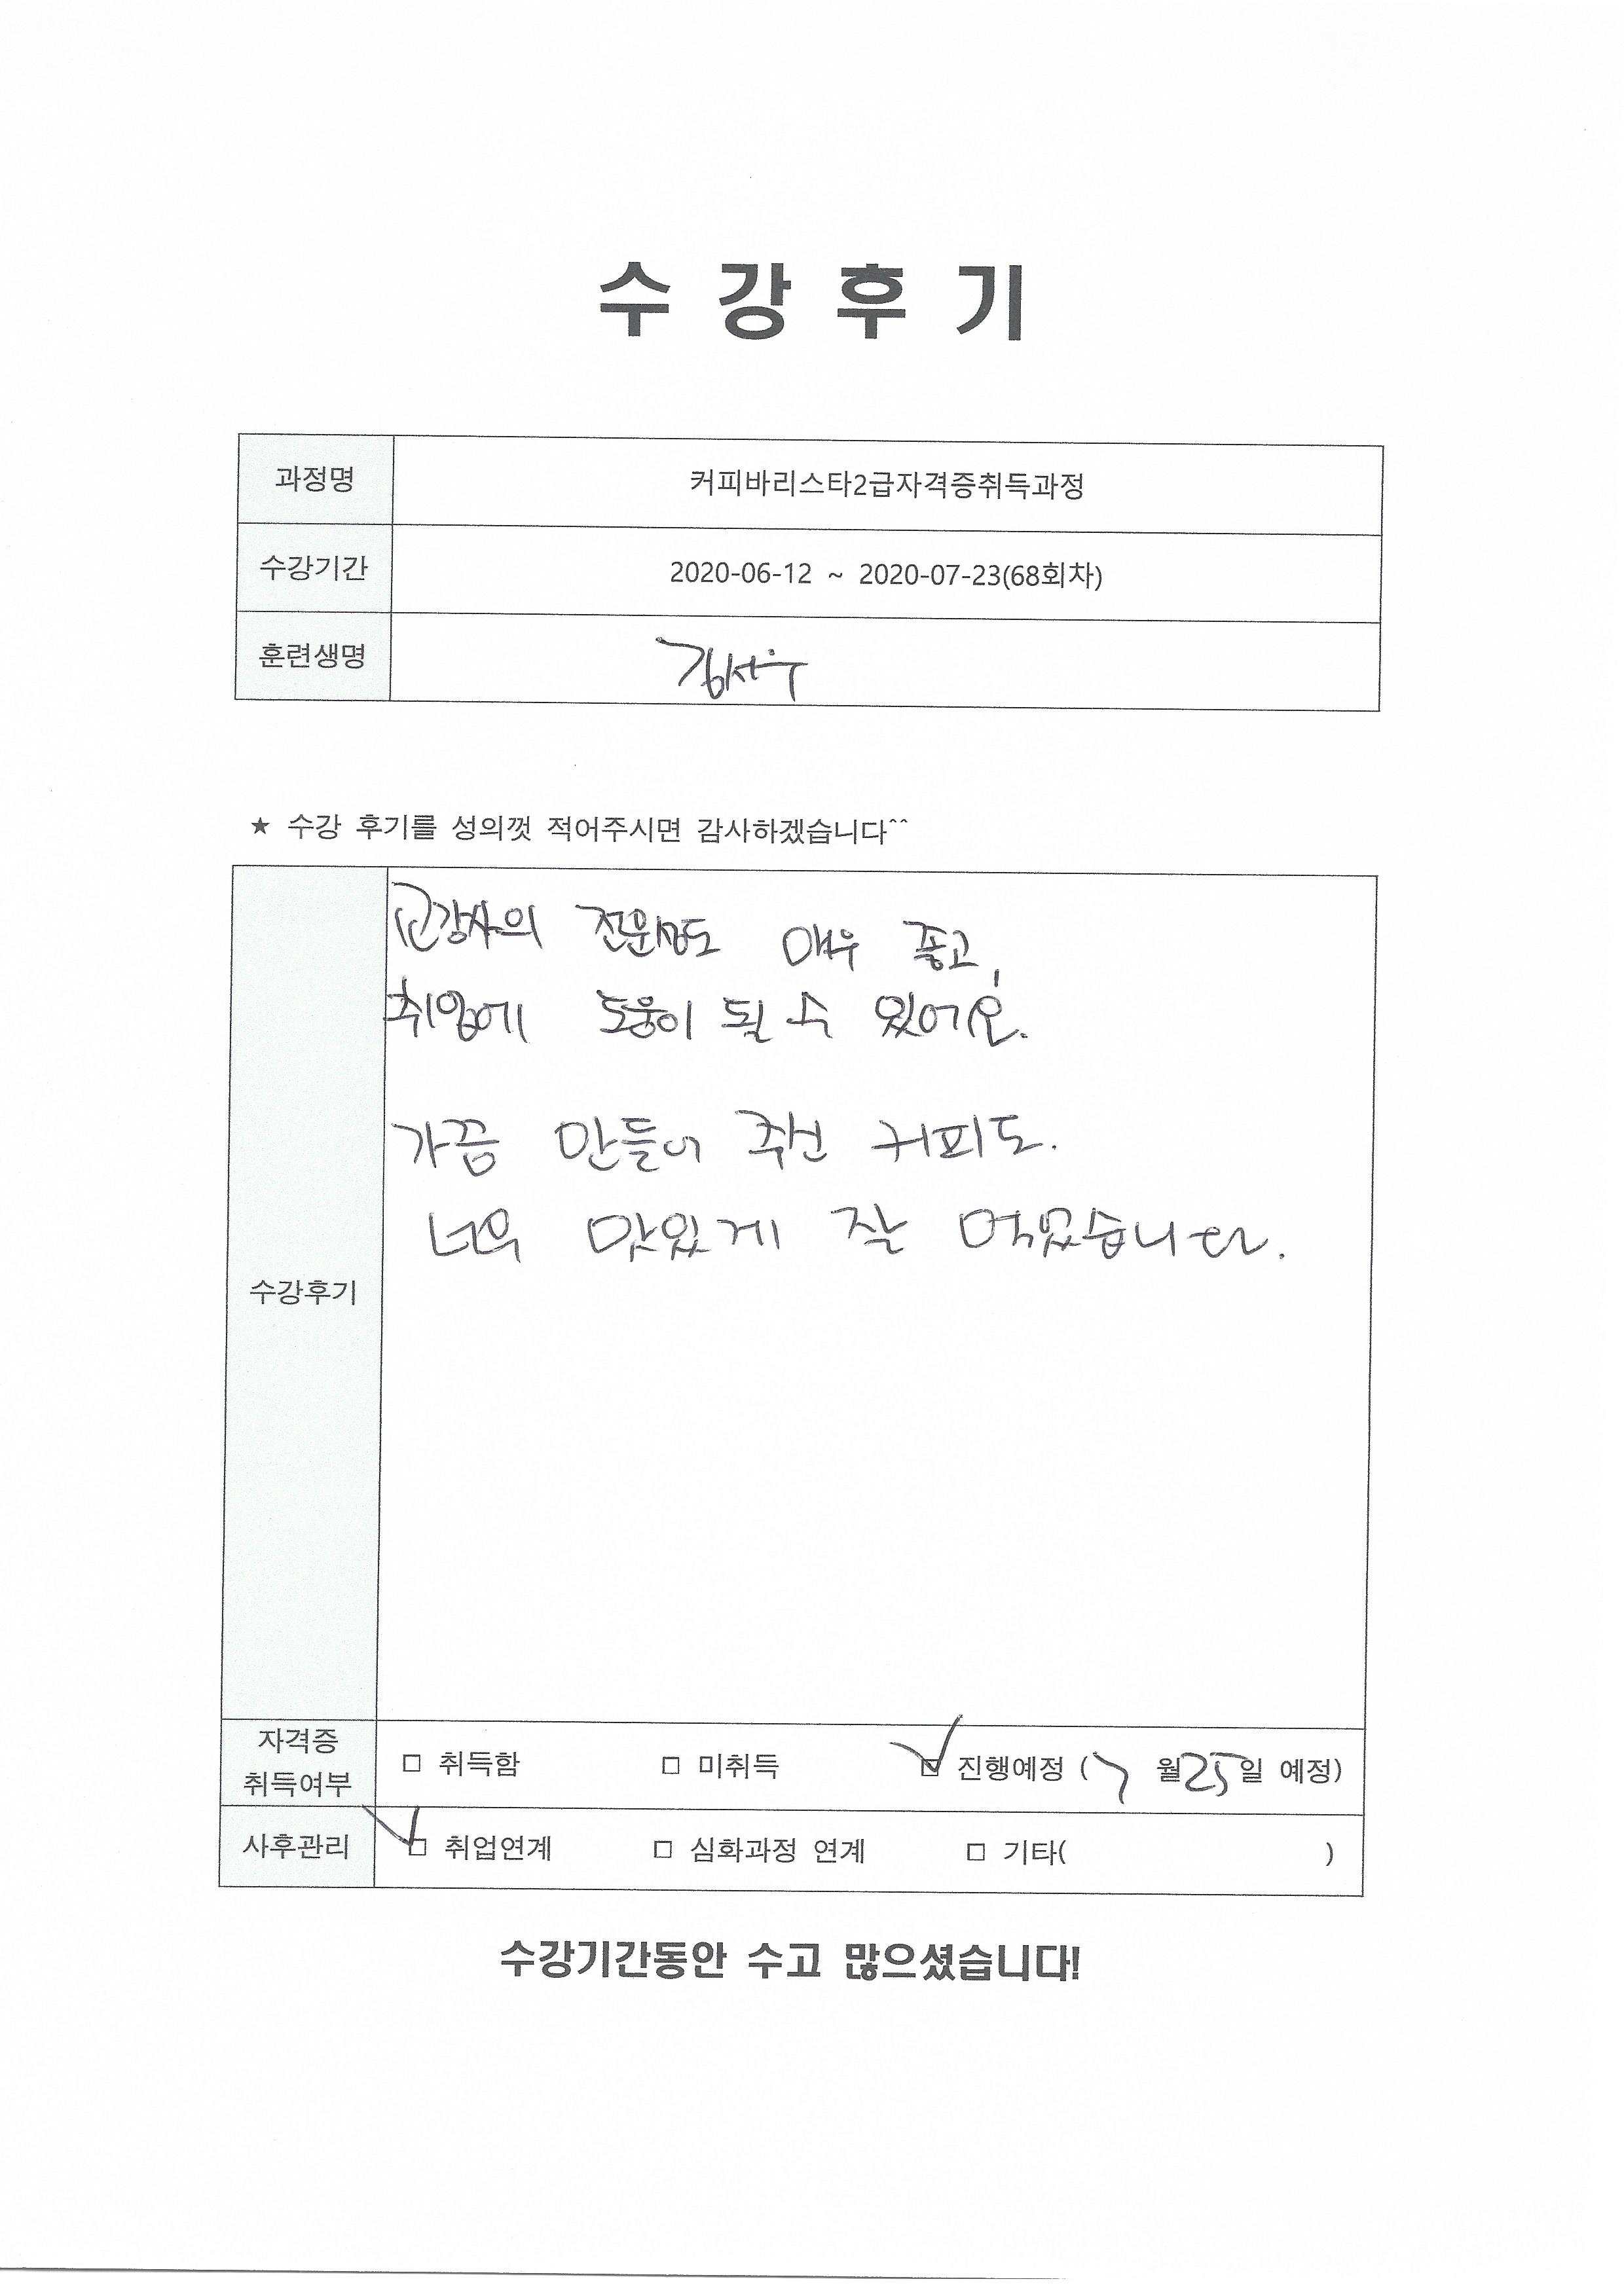 수 강 후 기
과정명 커피바리스타2급자격증취득과정
수강기간 2020-06-12 ~ 2020-07-23(68회차)
훈련생명
★ 수강 후기를 성의껏 적어주시면 감사하겠습니다^^
교강사의 전문성도 매우 좋고,
취업에 도움이 될 수 있어요.
가끔 만들어 주신 커피도.
너무 맛있게 잘 먹었습니다.
수강후기
자격증
취득여부
□ 취득함 □ 미취득 ☑ 진행예정 (7 월25일 예정)
사후관리 ☑ 취업연계 □ 심화과정 연계 □ 기타( )
수강기간동안 수고 많으셨습니다!